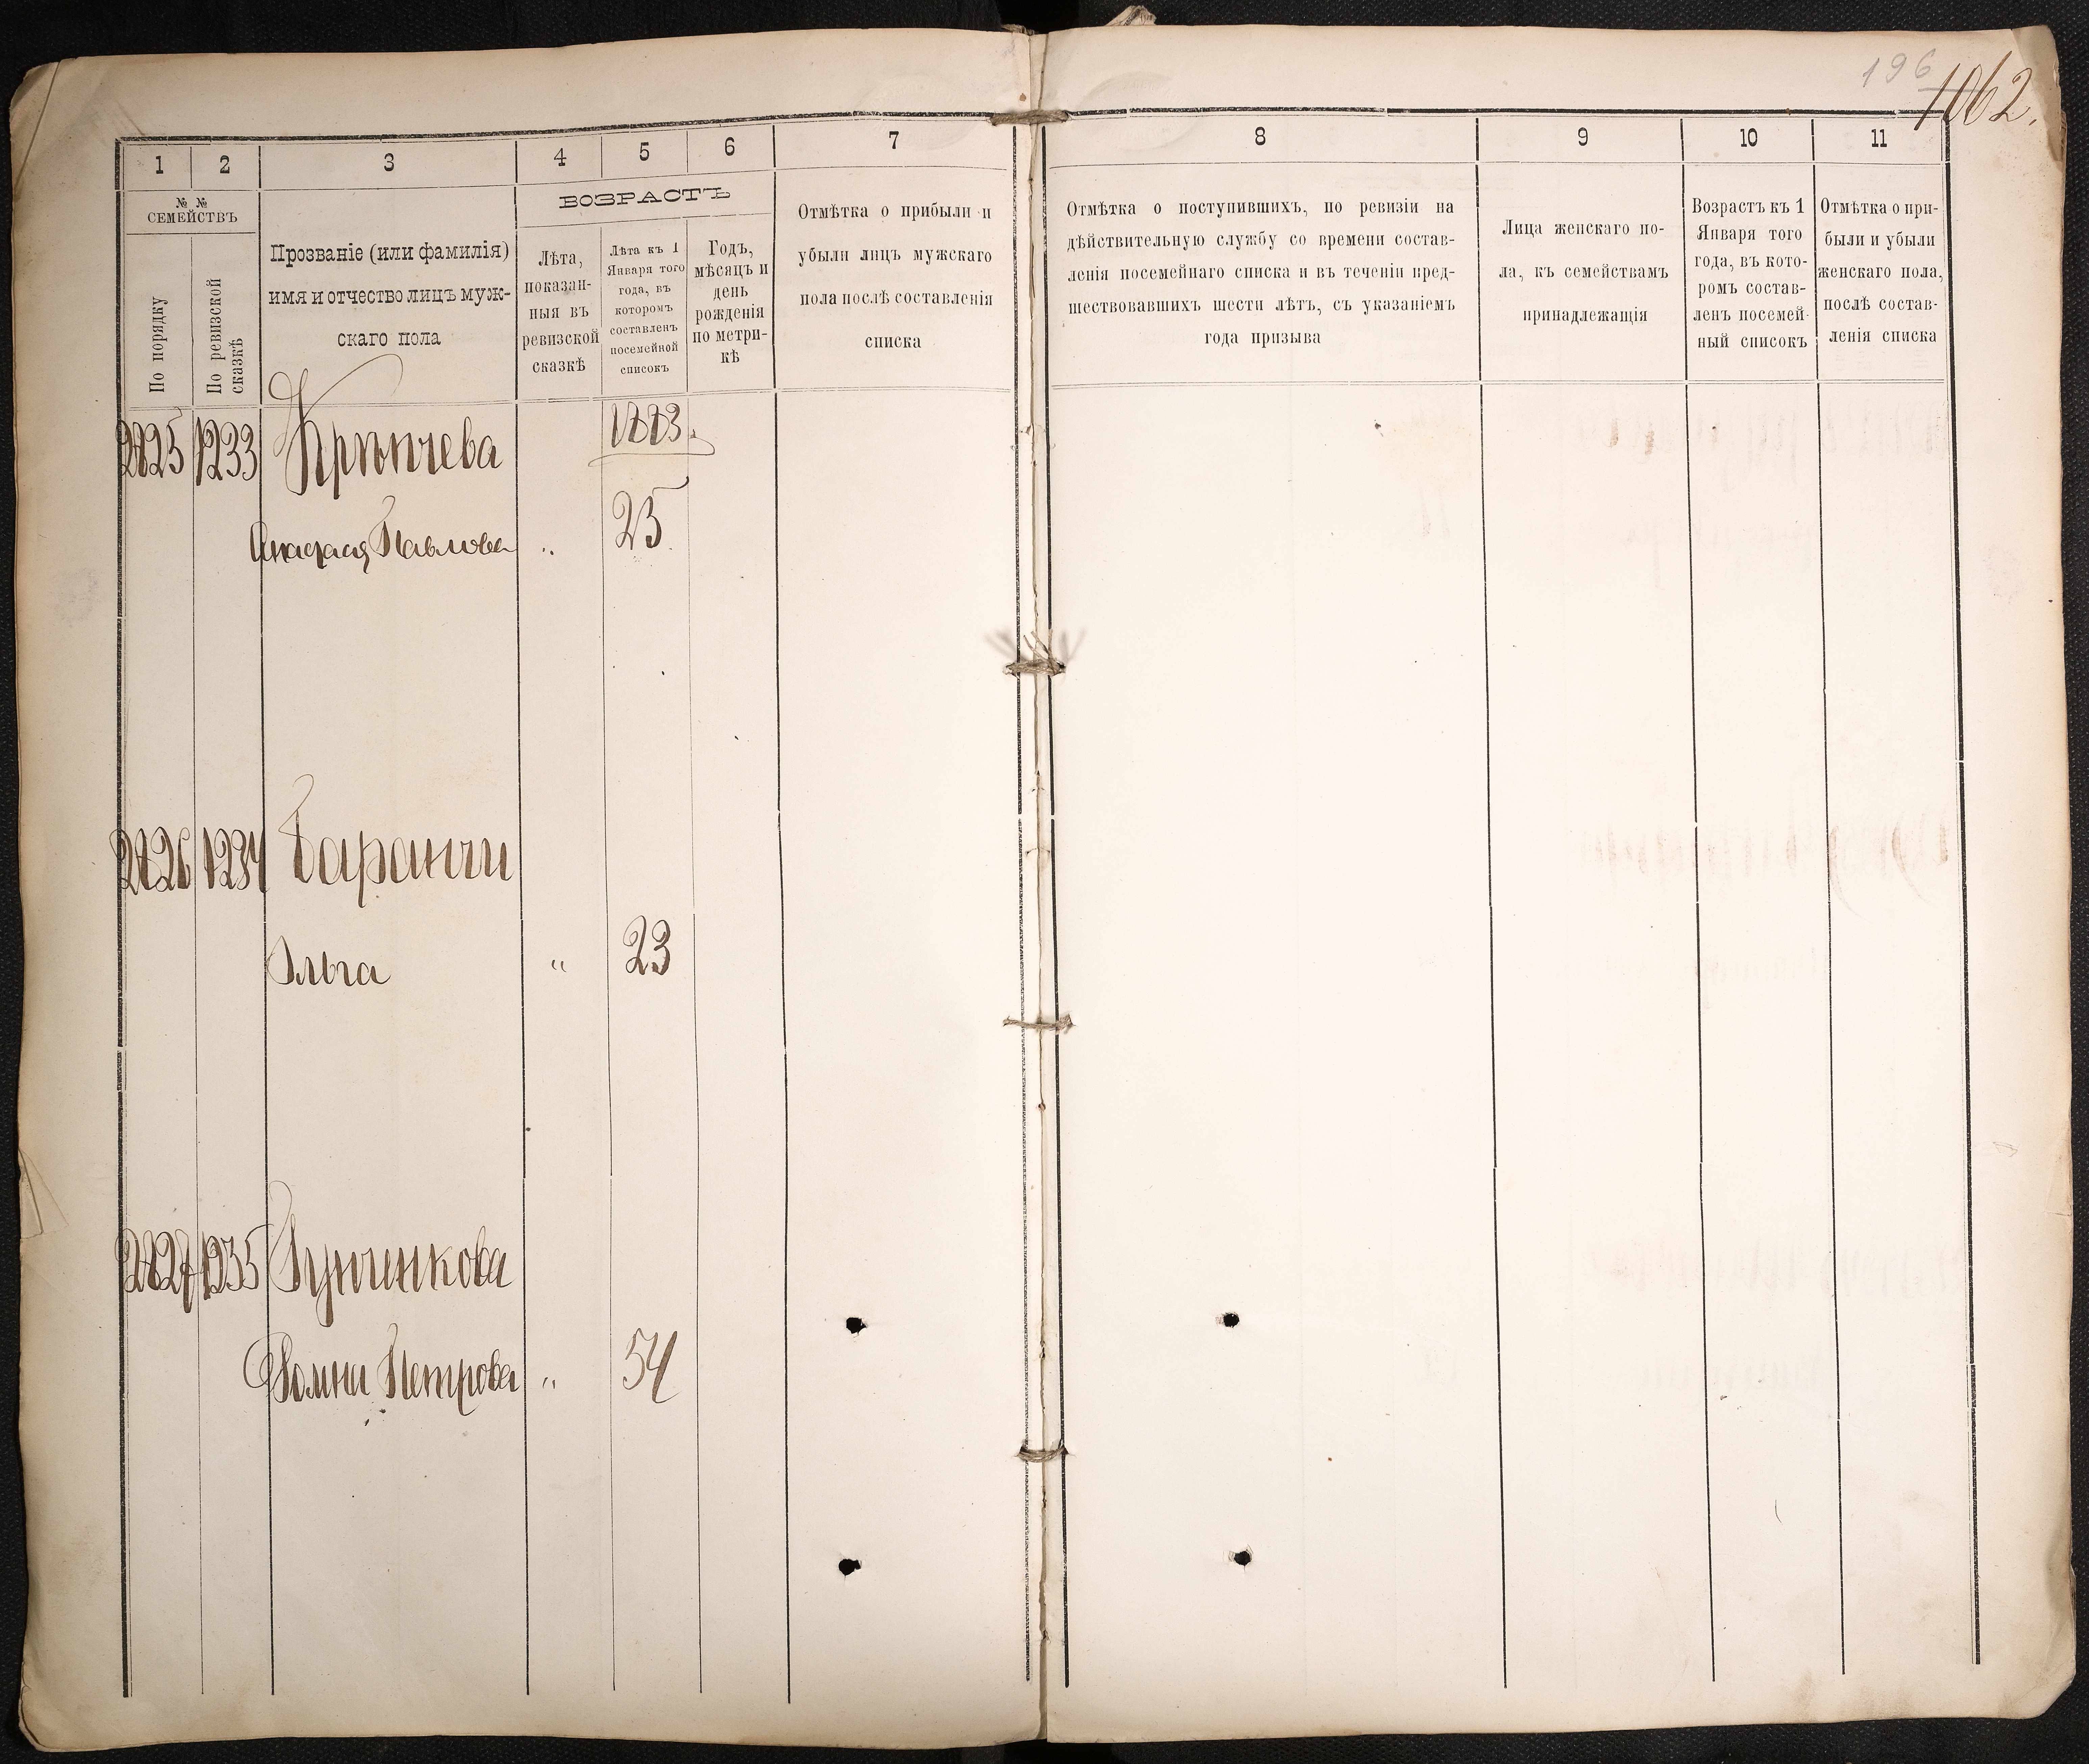 196
1062.
1
2
3
4
5
6
7
8
9
10
11
№ №
СЕМЕЙСТВЪ
По порядку
По ревизской
сказкѣ
Прозваніе (или фамилія)
имя и отчество лицъ муж-
скаго пола
ВОЗРАСТЪ
Лѣта,
показан-
ныя въ
ревизской
сказкѣ
Лѣта къ 1
Января того
года, въ
которомъ
составленъ
посемейной
списокъ
Годъ,
мѣсяцъ и
день
рожденія
по метри-
кѣ
Отмѣтка о прибыли и
убыли лицъ мужскаго
пола послѣ составленія
списка
Отмѣтка о поступившихъ, по ревизіи на
дѣйствительную службу со времени состав-
ленія посемейнаго списка и въ теченіи пред-
шествовавшихъ шести лѣтъ, съ указаніемъ
года призыва
Лица женскаго по-
ла, къ семействамъ
принадлежащія
Возрастъ къ 1
Января того
года, въ кото-
ромъ состав-
ленъ посемей-
ный списокъ
Отмѣтка о при-
были и убыли
женскаго пола,
послѣ состав-
ленія списка
1883.
2825 1233
Павлова " 25
2826 1234 Баранчи
Ольга " 23
2827 1235
Домна Петрова " 54